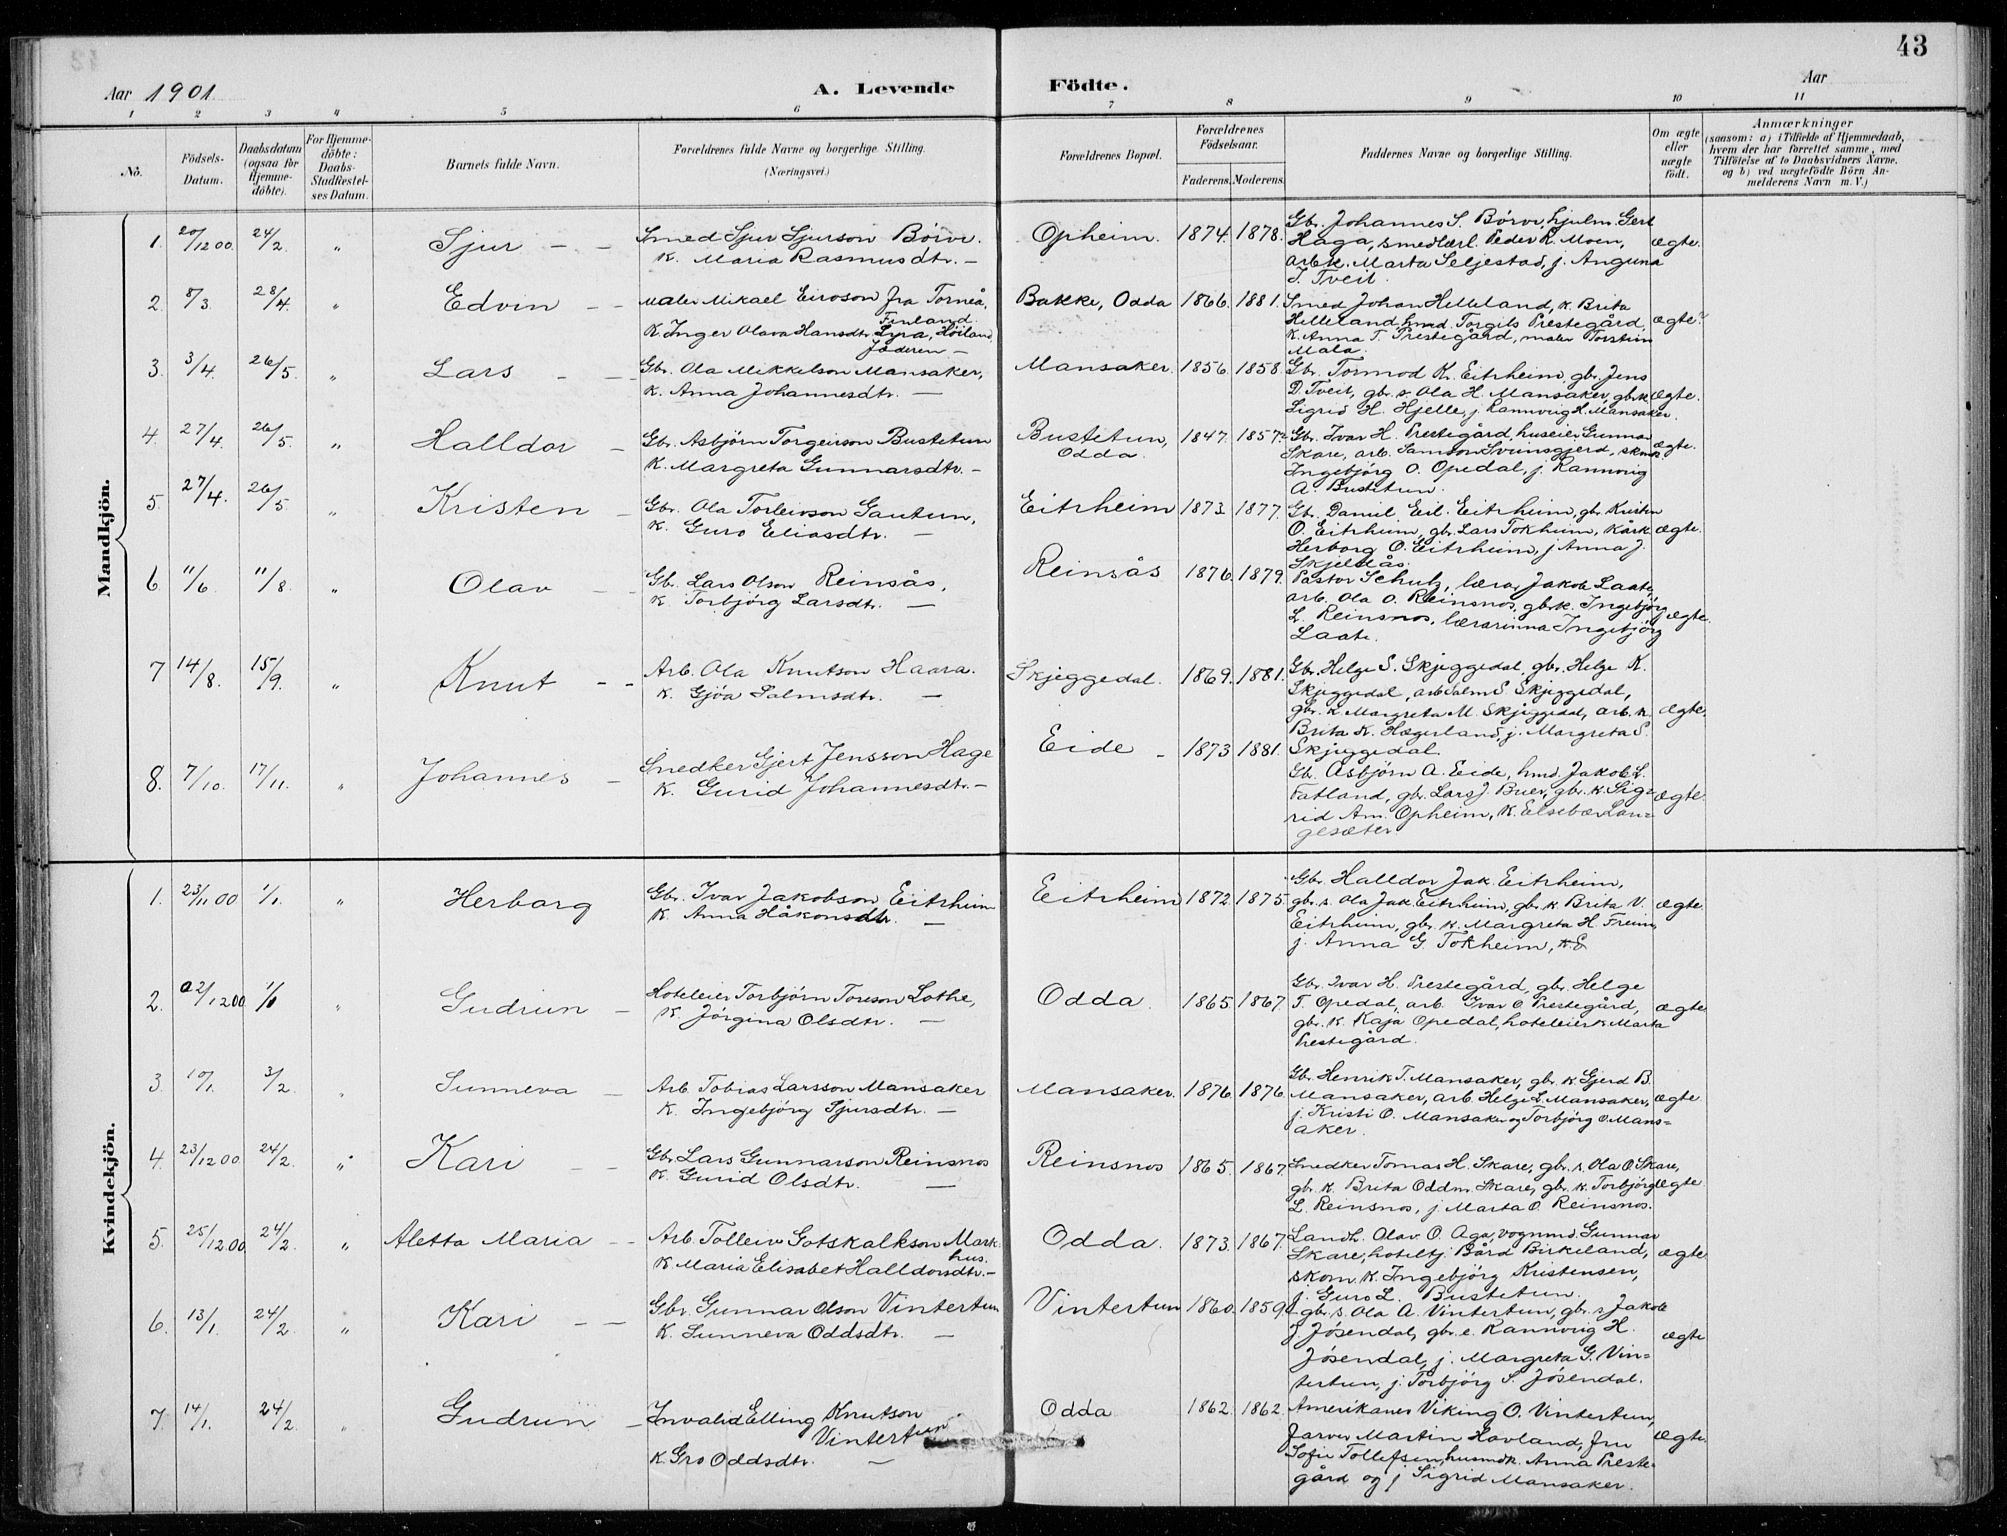 43
Aar 1901. A. Levende Födte. Aar
1 2 3 4 5 6 7 8 9 10 11
No.
Födsels-
Datum.
Daabsdatum
(ogsaa for
Hjemme-
döbte).
For Hjemme-
döbte:
Daabs-
Stadfæstel-
ses Datum.
Barnets fulde Navn.
Forældrenes fulde Navne og borgerlige Stilling.
(Næringsvei.)
Forældrenes Bopæl.
Forældrenes
Födselsaar.
Faderens. Moderens.
Faddernes Navne og borgerlige Stilling.
Om ægte
eller
uægte
födt.
Anmærkninger
(saasom: a) i Tilfælde af Hjemmedaab,
hvem der har forrettet samme, med
Tilföielse af to Daabsvidners Navne.
og b) ved uægtefödte Börn An-
melderens Navn m. V.)
Mandkjön.
1. 20/12 00. 24/2. " Sjur - -
Smed Sjur Sjurson Börve.
K. Maria Rasmusdtr. -
Opheim. 1874. 1878.
Gbr. Johannes S. Börve, hjulm. Gert
Haga, smedlærl. Peder R. Moen,
arb.k. Marta Seljestad, j. Anguna
T. Tveit.
ægte.
2. 8/3. 28/4. " Edvin -
Maler Mikael Eiroson fra Torneå,
Finland.
K. Inger Olava Hansdtr. Lyra, Höiland
Jäderen -
Bakke, Odda 1866. 1881.
Smed Johan Helleland, k. Brita
Helleland, hmd. Torgils Prestegård,
K. Anna T. Prestegård, maler Torstein
Mala.
ægte.
3. 3/4. 26/5. " Lars - -
Gbr. Ola Mikkelson Mansaker,
k. Anna Johannesdtr. -
Mansaker. 1856. 1858.
Gbr. Tormod K. Eitrheim, gbr. Jens
D. Tveit, gbr. s. Ola H. Mansaker, gbr.k.
Sigrid H. Hjelle, j. Rannveig H. Mansaker.
ægte.
4. 27/4. 26/5. " Halldor -
Gbr. Asbjörn Torgeirson Bustetun
K. Margreta Gunnarsdtr. -
Bustetun,
Odda.
1847. 1857.
Gbr. Ivar H. Prestegård, huseier Gunnar
Skare, arb. Samson Sveinsgjerd,
Ingebjörg O. Opedal, j. Rannveig
A. Bustetun.
ægte.
5. 27/4. 26/5. " Kristen -
Gbr. Ola Torleivson Sautun,
k. Guro Eliasdtr. -
Eitrheim 1873. 1877.
Gbr. Daniel Eil. Eitrheim, gbr. Kristen
O. Eitrheim, gbr. Lars Tokheim,
Herborg O. Eitrheim, j Anna J.
Skjelnås.
ægte.
6. 11/6. 11/8. " Olav - -
Gb. Lars Olson Reinsås,
k Torbjörg Larsdtr. -
Reinsås 1876. 1879.
Pastor Schulz, lærar Jakob Laate,
arb. Ola O. Reinsnos, gbr.k. Ingebjörg
L. Reinsnos, lærarinna Ingebjörg
Laate.
ægte.
7 14/8. 15/9. " Knut - -
Arb. Ola Knutson Haara.
k. Gjöa Salmsdtr. -
Skjeggedal. 1869. 1881.
Gbr. Helge S. Skjeggedal, gbr. Helge K.
Skjeggedal, arb Salm S Skjeggedal,
gbr. k Margreta M. Skjeggedal, arb. k.
Brita K. Hægerland, j. Margreta S.
Skjeggedal.
ægte.
8. 7/10. 17/11. " Johannes -
Snedker Gjert Jensson Hage
k. Gurid Johannesdtr. -
Eide - 1873 1881.
Gb. Asbjörn A. Eide, hmd. Jakob L.
Fatland, gbr. Lars J. Buer, gbr. k. Sig-
rid Am. Opheim, k. Elsebæ Lan=
gesæter
ægte.
Kvindekjön.
1. 23/11 00 1/1. " Herborg
Gbr. Ivar Jakobson Eitrheim
K. Anna Håkonsdtr. -
Eitrheim 1872. 1875.
Gbr. Halldor Jak. Eitrheim,
gbr. s. Ola Jak. Eitrheim, gbr. k. Brita V.
Eitrheim, gbr. k. Margreta H. Freim,
j. Anna G. Tokheim,
ægte.
2. 02/12 00 1/1 " Gudrun -
Hoteleier Torbjörn Toreson Lothe,
K. Jörgina Olsdtr. -
Odda. 1865. 1867.
Gbr. Ivar H. Prestegård, gbr. Helge
T. Opedal, arb. Ivar O Prestegård,
gbr. k. Kaja Opedal, hoteleier k. Marta
Prestegård.
ægte.
3. 10/1. 3/2. " Sunneva -
Arb. Tobias Larsson Mansaker
K. Ingebjörg Sjursdtr. -
Mansaker. 1876. 1876.
Gbr. Henrik T. Mansaker, gbr. k. Gjerd B.
Mansaker, arb. Helge L. Mansaker,
j. Kristi O. Mansaker og Torbjörg O. Mans=
aker.
ægte
4. 23/12 00 24/2. " Kari - -
Gbr. Lars Gunnarson Reinsnos
K. Gurid Olsdtr. -
Reinsnos 1865. 1867.
Snedker Tomas H. Skare, gbr. s. Ola O. Skare,
gbr. k. Brita Oddm. Skare, gbr. k. Torbjörg
L. Reinsnos, j Marta O. Reinsnos.
ægte
5. 25/12 00. 24/2. " Aletta Maria - -
Arb. Tolleiv Gotskalkson Mark-
hus.
K. Maria Elisabet Halldorsdtr. -
Odda. 1873. 1867.
Landh. Olav O. Aga, vognmd. Gunnar
Skare, hoteltj. Bård Birkeland,
skom. k. Ingebjörg Kristensen,
j. Guro L. Bustetun.
ægte
6. 13/1. 24/2. " Kari - -
Gbr. Gunnar Olson Vintertun
K. Sunneva Oddsdtr. -
Vintertun 1860. 1859.
gbr. s. Ola A. Vintertun, gbr. s Jakob
J. Jösendal, gbr. e. Rannveig H.
Jösendal, j. Margreta G. Vin=
tertun, j. Torbjörg S. Jösendal.
ægte
7. 14/1. 24/2 " Gudrun -
Invalid Elling Knutson
Vintertun
K. Gro Oddsdtr. -
Odda 1862. 1862.
Amerikaner Viking O. Vintertun,
Farver Martin Havland, Fru
Sofie Tollefsen, husmdk. Anna Preste-
gård og j Sigrid Mansaker.
ægte.